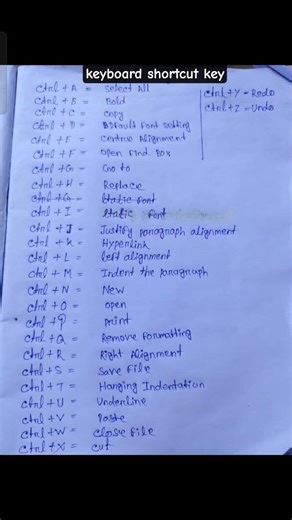 keyboard shortcut key
Ctrl + A = Select All
Ctrl + B = Bold
Ctrl + C = Copy
Ctrl + D = Default Font Setting
Ctrl + E = Centre Alignment
Ctrl + F = Open Find Box
Ctrl + G = Go to
Ctrl + H = Replace
Ctrl + G = Italic font
Ctrl + I = Italic font
Ctrl + J = Justify paragraph alignment
Ctrl + K = Hyperlink
Ctrl + L = left alignment
Ctrl + M = Indent the paragraph
Ctrl + N = New
Ctrl + O = open
Ctrl + P = print
Ctrl + Q = Remove Formatting
Ctrl + R = Right Alignment
Ctrl + S = Save File
Ctrl + T = Hanging Indentation
Ctrl + U = Underline
Ctrl + V = Paste
Ctrl + W = Close File
Ctrl + X = Cut
Ctrl + Y = Redo
Ctrl + Z = Undo